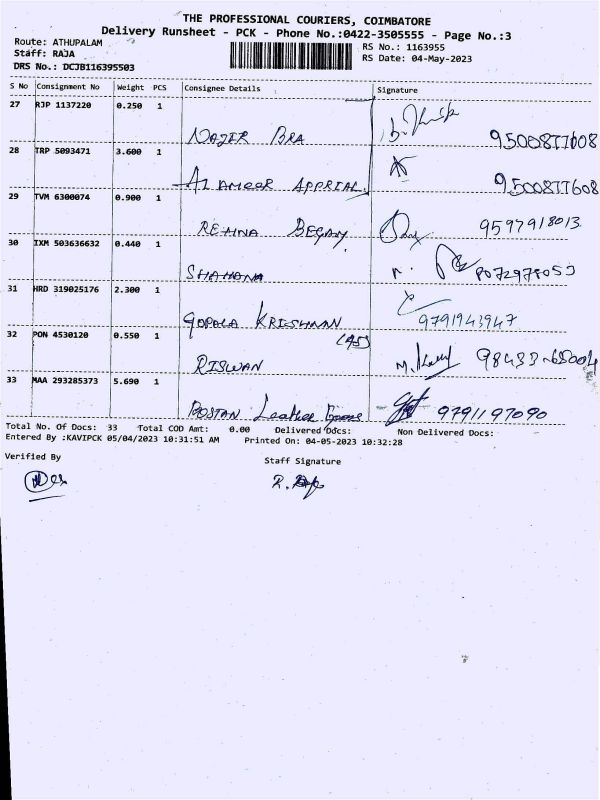 THE PROFESSIONAL COURIERS, COIMBATORE
Delivery Runsheet - PCK - Phone No.:0422-3505555 - Page No.:3
Route: ATHUPALAM
Staff: RAJA
DRS No.: DCJB116395503
RS No.: 1163955
RS Date: 04-May-2023
S No Consignment No Weight PCS Consignee Details Signature
27 RJP 1137220 0.250 1
NAZER BRA 9500877608
28 TRP 5093471 3.600 1
AL AMEER APPRIAL. 9500877608
29 TVM 6300074 0.900 1
REHNA BEGAM 9597918013
30 IXM 503636632 0.440 1
SHAHANA 8072978053
31 HRD 319025176 2.300 1
GOPALA KRISHNAN 9791943947
32 PON 4530120 0.550 1
RISWAN 98433-65004
33 MAA 293285373 5.690 1
BOSTAN Leather 9791197090
Total No. Of Docs: 33 Total COD Amt: 0.00 Delivered Docs: Non Delivered Docs:
Entered By :KAVIPCK 05/04/2023 10:31:51 AM Printed On: 04-05-2023 10:32:28
Verified By
Staff Signature